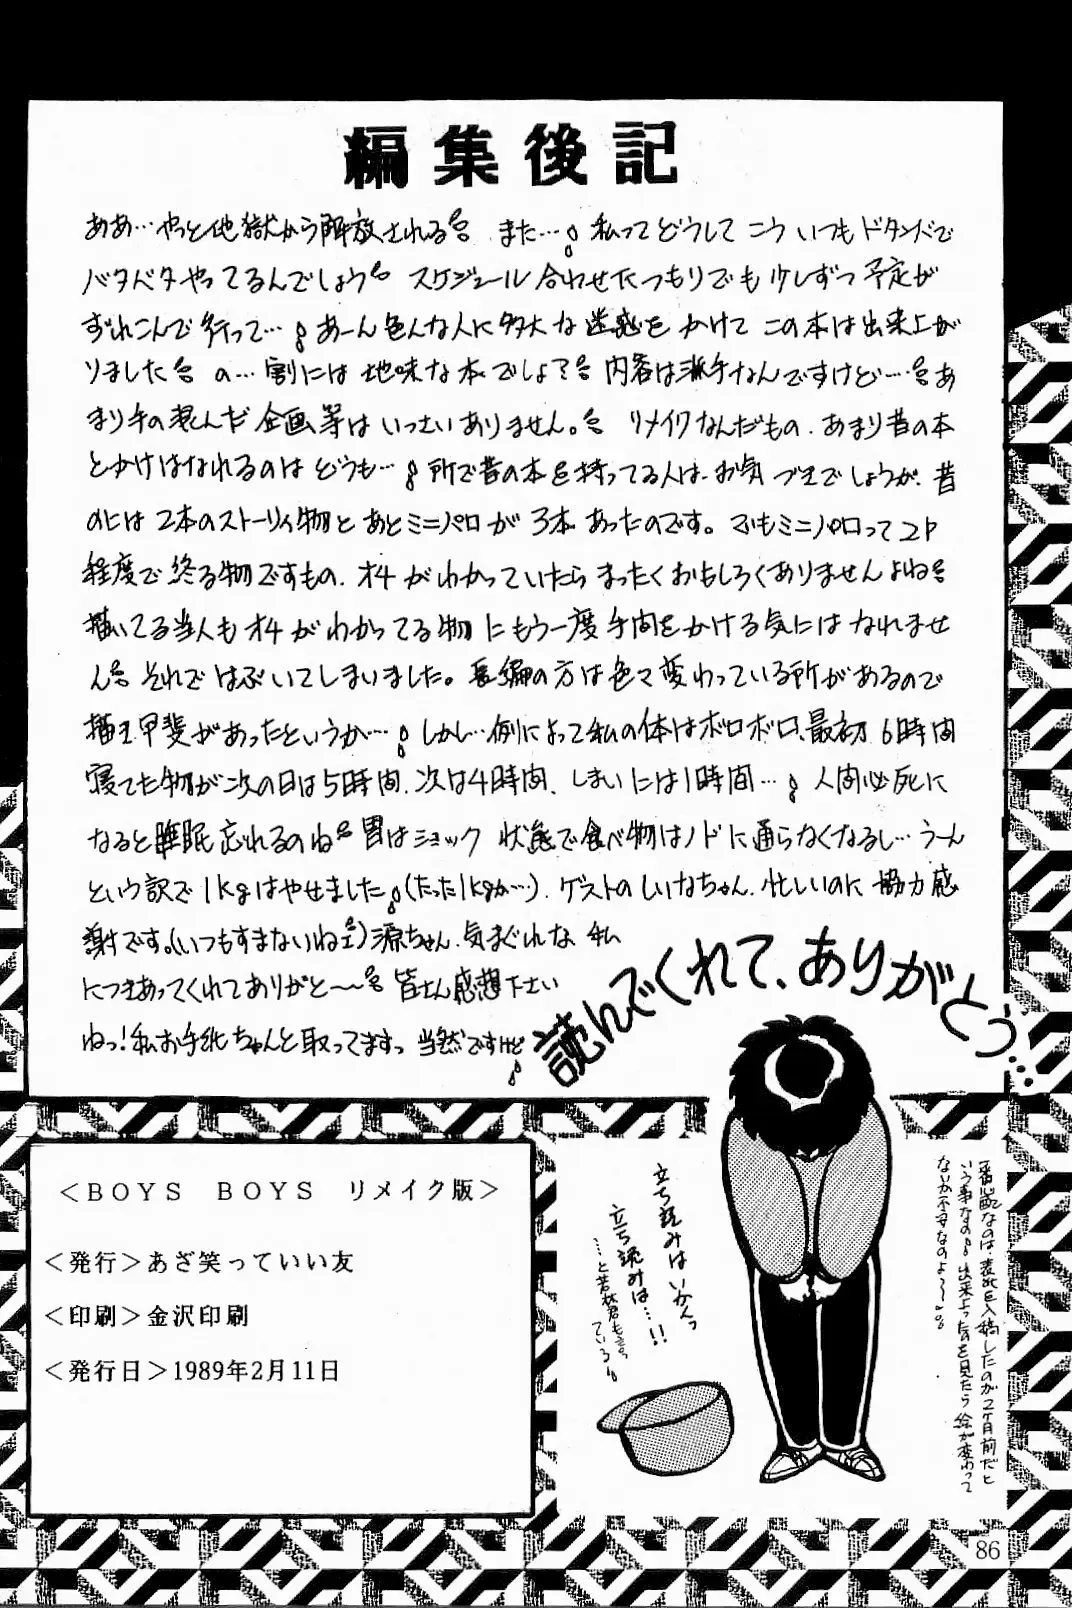 編集後記
ああ…やっと地獄から解放される また… 私ってどうしてこういつもドタンバで
バタバタやってるんでしょう スケジュール合わせたつもりでも少しずつ予定が
ずれこんで行って… あーん色んな人に多大な迷惑をかけてこの本は出来上が
りました の…割には地味な本でしょ? 内容は派手なんですけど…あ
まり手の混んだ企画等はいっさいありません。 リメイクなんだもの、あまり昔の本
とかけはなれるのはどうも… 所で昔の本を持ってる人は、お気づきでしょうが、昔
のには2本のストーリィ物とあとミニパロが3本あったのです。でもミニパロって2P
程度で終る物ですもの、オチがわかっていたらまったくおもしろくありませんよね
描いてる当人もオチがわかってる物にもう一度手間をかける気にはなれませ
ん それではぶいてしまいました。長編の方は色々変わっている所があるので
描く甲斐があったというか… しかし…例によって私の体はボロボロ、最初6時間
寝てた物が次の日は5時間、次は4時間、しまいには1時間… 人間必死に
なると睡眠忘れるのね 胃はショック状態で食べ物はノドに通らなくなるし…うーん
という訳で1kgはやせました(たった1kgか…)、ゲストのしいなちゃん、忙しいのに協力感
謝です。(いつもすまないねェ)源ちゃん、気まぐれな私
につきあってくれてありがと〜〜 皆さん感想下さい
ねっ!私お手紙ちゃんと取ってますっ 当然ですけど
読んでくれて、ありがとう…
<BOYS BOYS リメイク版>
<発行>あざ笑っていい友
<印刷>金沢印刷
<発行日>1989年2月11日
立ち読みはいかんっ
立ち読みは…!!
…と若林君も言っ
ている
一番心配なのは、表紙を入稿したのが2ヶ月前だと
いう事なの 出来上った本を見たら絵が変わって
ないか不安なのよ〜
86